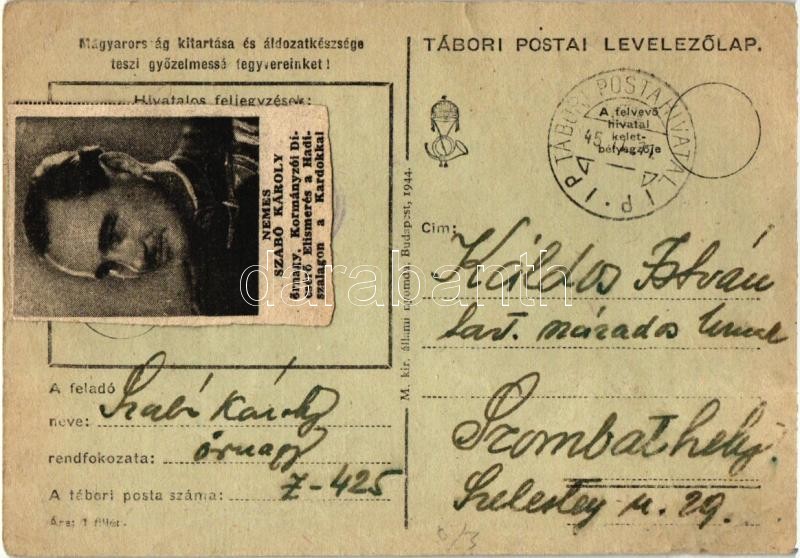 Magyarország kitartása és áldozatkészsége
teszi győzelmessé fegyvereinket!
Hivatalos feljegyzések:
NEMES
SZABÓ KÁROLY
őrnagy, Kormányzói Di-
csérő Elismerés a Hadi-
szalagon a Kardokkal
A feladó
neve: Szabó Károly
rendfokozata: őrnagy
A tábori posta száma: Z-425
Ára: 1 fillér.
M. kir. állami nyomda, Budapest, 1944.
TÁBORI POSTAI LEVELEZŐLAP.
TÁBORI POSTAHIVATAL
A felvevő
hivatal
kelet-
bélyegzője
45
Cím:
Káldos István
százados
Szombathely.
Szelestey u. 29.
darabanth